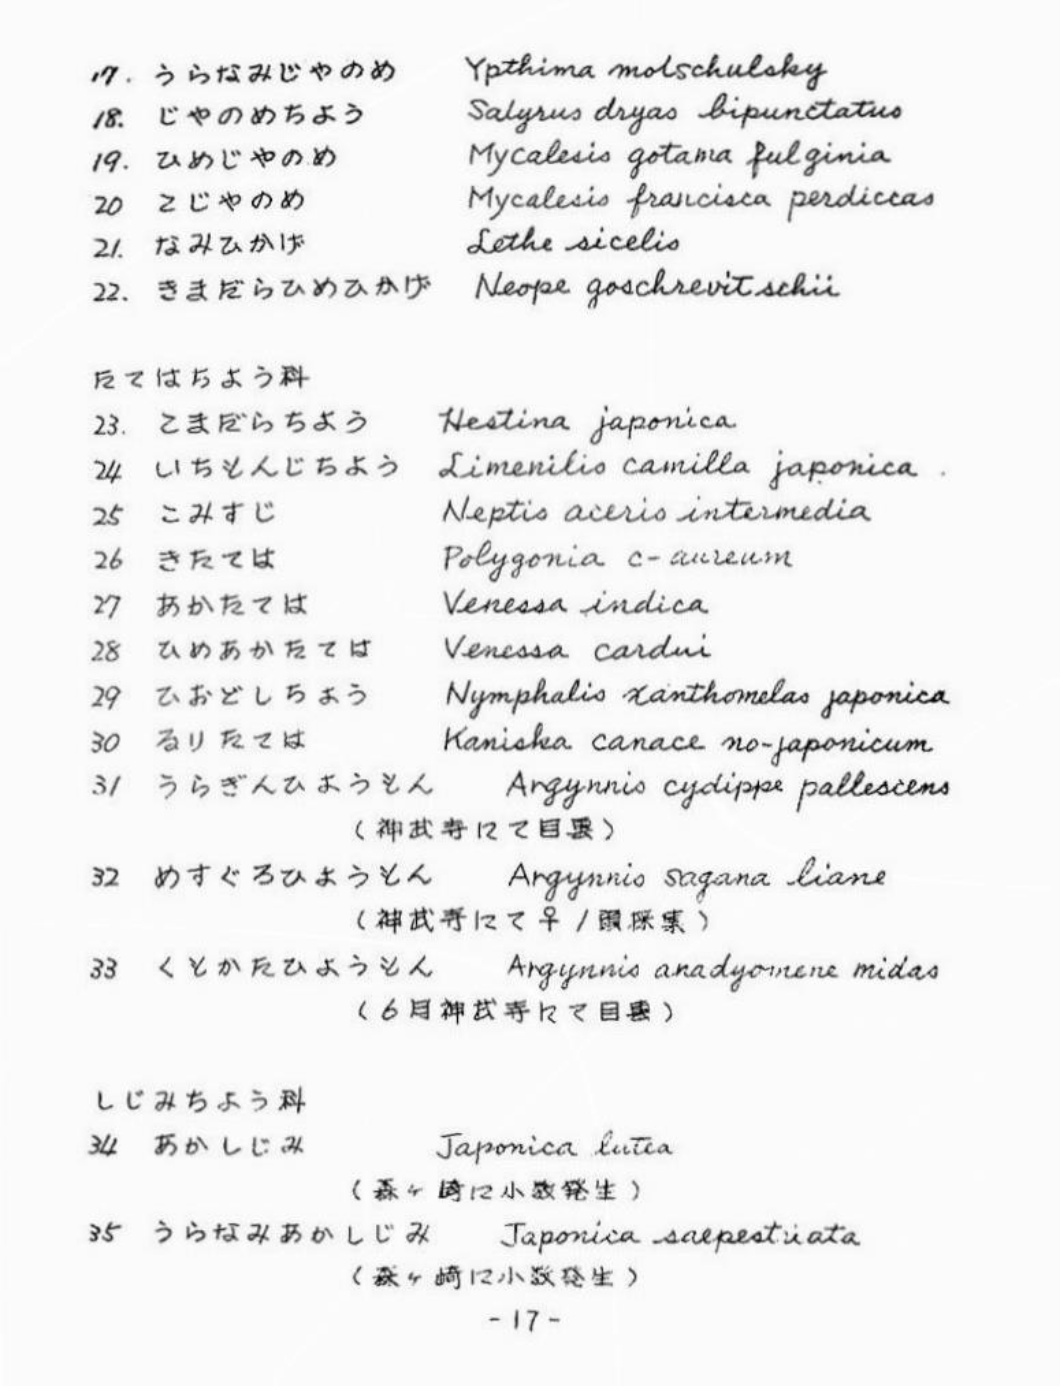 17. うらなみじやのめ Ypthima motschulsky
18. じやのめちよう Satyrus dryas bipunctatus
19. ひめじやのめ Mycalesis gotama fulginia
20 こじやのめ Mycalesis francisca perdiccas
21. なみひかげ Lethe sicelis
22. きまだらひめひかげ Neope goschrevitschii
たてはちよう科
23. こまだらちよう Hestina japonica
24 いちもんじちよう Limenilis camilla japonica
25 こみすじ Neptis aceris intermedia
26 きたては Polygonia c-aureum
27 あかたては Venessa indica
28 ひめあかたては Venessa cardui
29 ひおどしちよう Nymphalis xanthomelas japonica
30 るりたては Kaniska canace no-japonicum
31 うらぎんひようもん Argynnis cydippe pallescens
(神武寺にて目撃)
32 めすぐろひようもん Argynnis sagana liane
(神武寺にて♀1頭採集)
33 くもがたひようもん Argynnis anadyomene midas
(6月神武寺にて目撃)
しじみちよう科
34 あかしじみ Japonica lutea
(森ヶ崎に小数発生)
35 うらなみあかしじみ Japonica saepestriata
(森ヶ崎に小数発生)
-17-